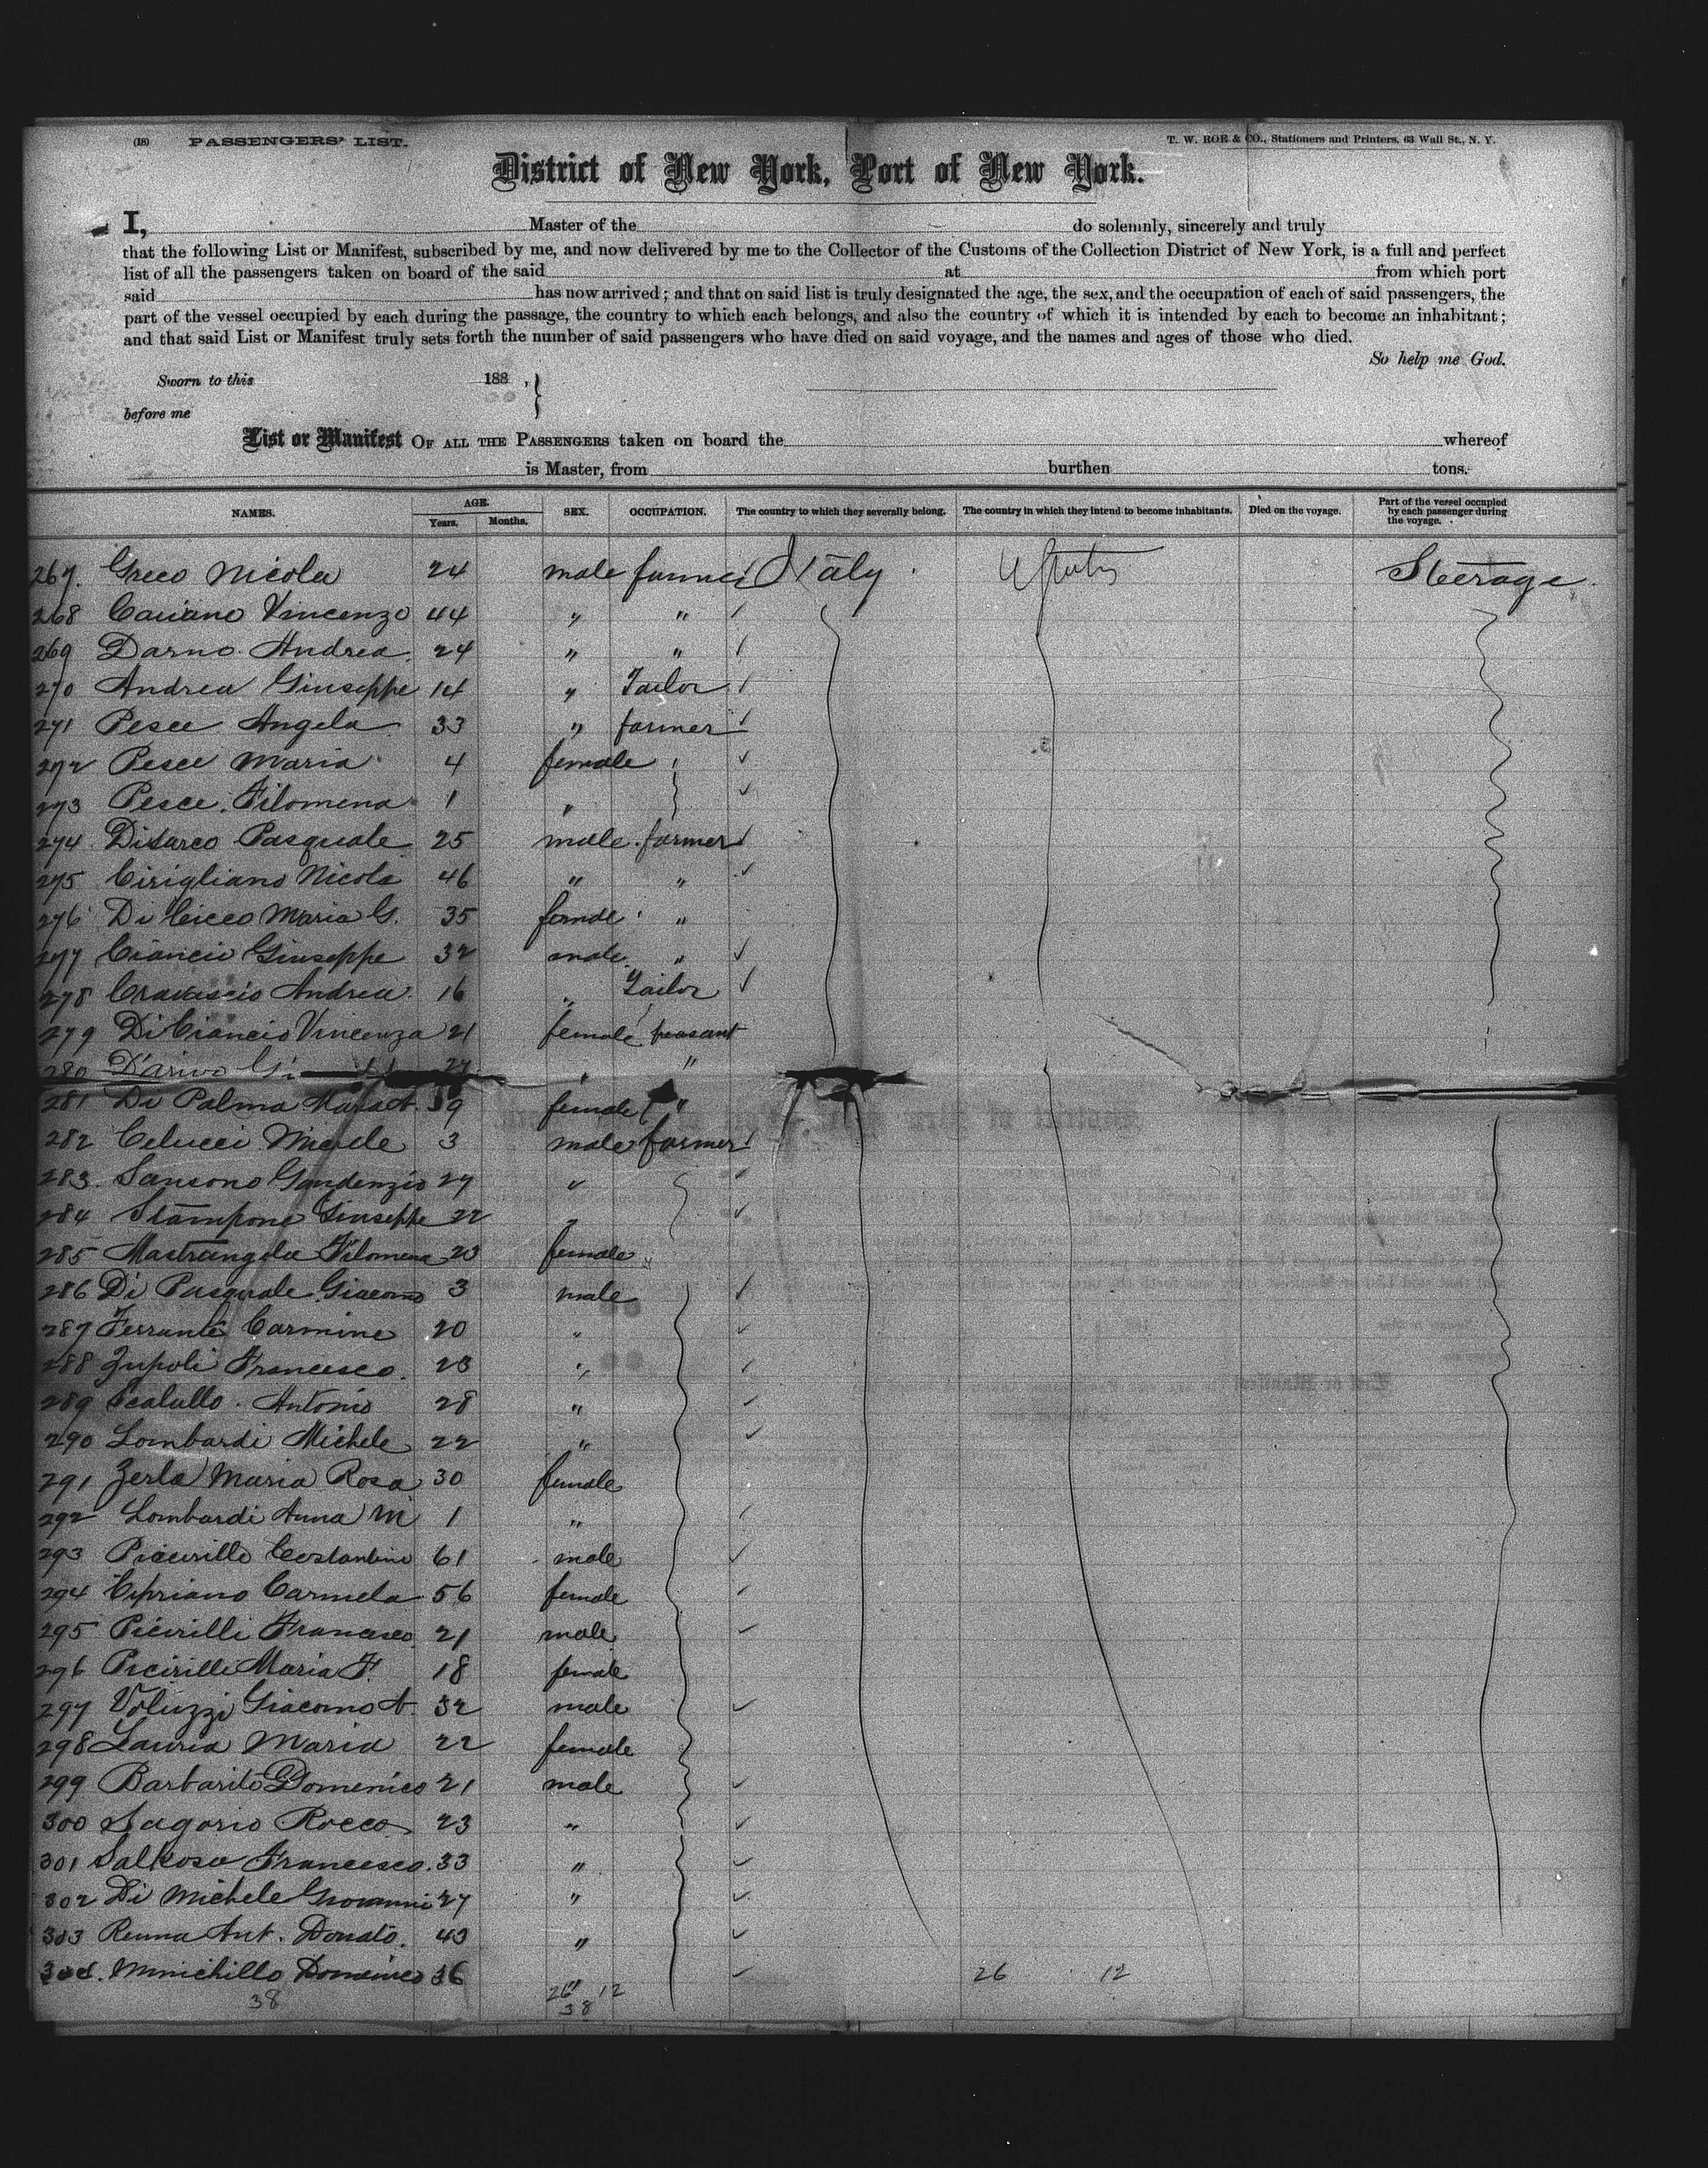 (18) PASSENGERS' LIST. T. W. ROE & CO., Stationers and Printers, 63 Wall St., N. Y.
District of New York, Port of New York.
I, Master of the do solemnly, sincerely and truly
that the following List or Manifest, subscribed by me, and now delivered by me to the Collector of the Customs of the Collection District of New York, is a full and perfect
list of all the passengers taken on board of the said at from which port
said has now arrived; and that on said list is truly designated the age, the sex, and the occupation of each of said passengers, the
part of the vessel occupied by each during the passage, the country to which each belongs, and also the country of which it is intended by each to become an inhabitant;
and that said List or Manifest truly sets forth the number of said passengers who have died on said voyage, and the names and ages of those who died.
So help me God.
Sworn to this 188 ,
before me
List or Manifest OF ALL THE PASSENGERS taken on board the whereof
is Master, from burthen tons.
NAMES. AGE. Years. Months. SEX. OCCUPATION. The country to which they severally belong. The country in which they intend to become inhabitants. Died on the voyage. Part of the vessel occupied by each passenger during the voyage.
267. Greco Nicola 24 male farmer Italy Steerage.
268 Caviano Vincenzo 44 " "
269 Darno Andrea 24 " "
270 Andrea Giuseppe 14 " Tailor
271 Pesce Angela 33 " farmer
272 Pesce Maria 4 female
273 Pesce Filomena 1 "
274 Pasquale 25 male farmer
275 Cirigliano Nicola 46 " "
276 Di Cicco Maria G. 35 female "
277 Ciancio Giuseppe 32 male "
278 Andrea 16 " Tailor
279 Di Ciancio Vincenza 21 female peasant
280 D'arivo "
281 Di Palma Maria A. 39 female "
282 Celucci Michele 3 male farmer
283. Sansono Gaudenzio 27 "
284 Stampone Giuseppe 22 "
285 Mastrangelo Filomena 23 female
286 Di Pasquale Giacomo 3 male
287 Ferrante Carmine 20 "
288 Zupoli Francesco. 23 "
289 Scalullo Antonio 28 "
290 Lombardi Michele 22 "
291 Zerla Maria Rosa 30 female
292 Lombardi Anna M 1 "
293 Picirillo Costantino 61 male
294 Cipriano Carmela 56 female
295 Picirilli Francesco 21 male
296 Picirilli Maria F. 18 female
297 Voluzzi Giacomo A. 32 male
298 Lauria Maria 22 female
299 Barbarito Domenico 21 male
300 Sagorio Rocco 23 "
301 Francesco. 33 "
302 Di Michele Giovanni 27 "
303 Renna Ant. Donato. 43 "
304. Minichillo Domenico 36 " 26 12
38 26 12
38